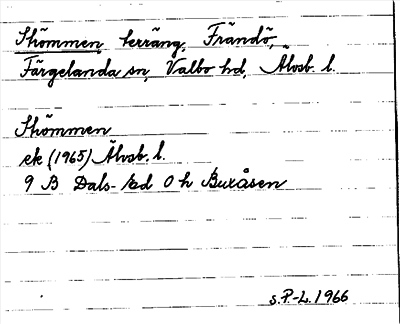 Skömmen, terräng, Frändö,
Färgelanda sn, Valbo hd, Älvsb. l.
Skömmen
ek (1965) Älvsb. l.
9 B Dals-Ed 0 h Buxåsen
s. P-L. 1966